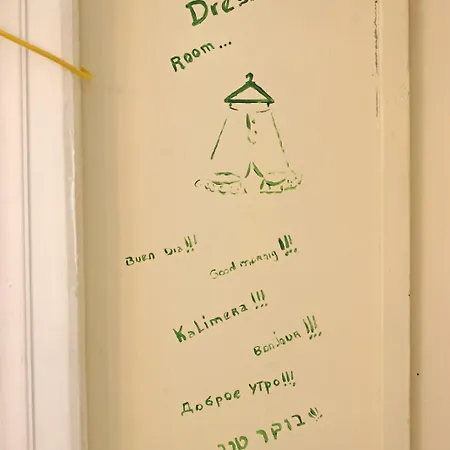 Dres
Room...
Buen Dia!!!
Good murnig!!!
Kalimera!!!
Bonjour!!!
Доброе утро!!!
בוקר טוב!!!